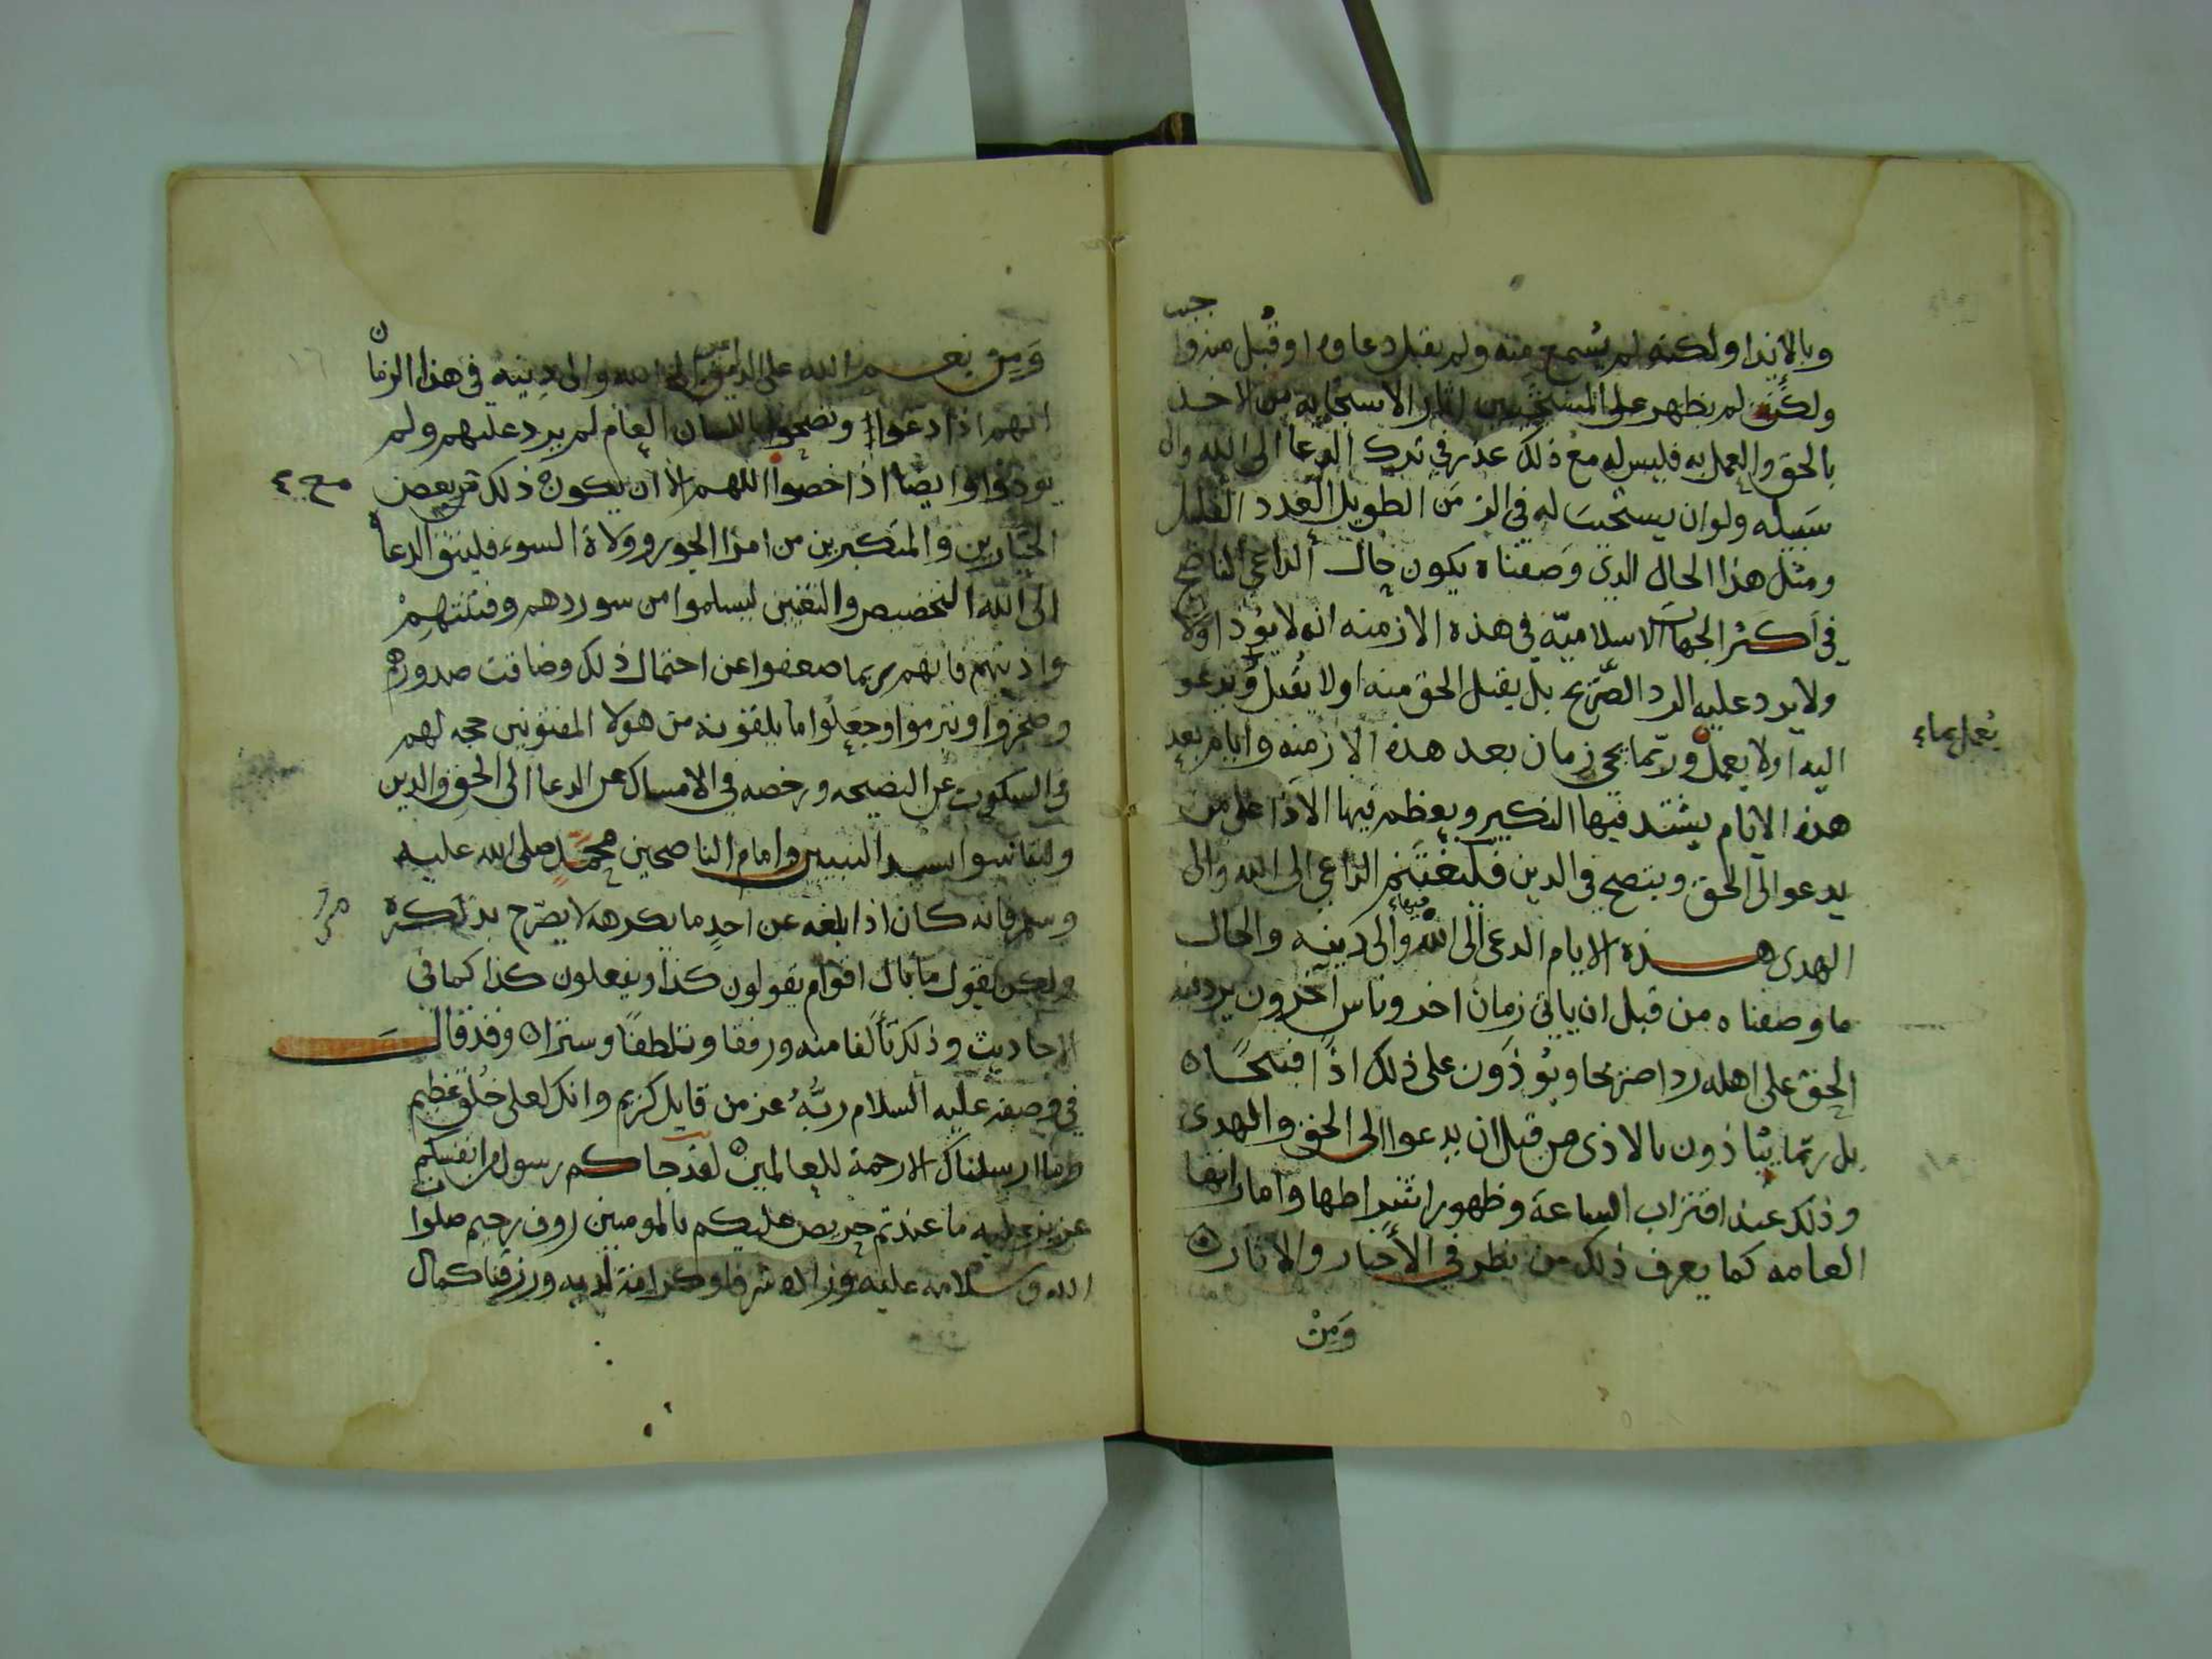 وبالايذا ولكنه لم يسمع منه ولم يقبل دعاوه او قبل منه وا
جيب
ولكن لم يظهر على المستجيبين اثار الاستجابه من الاخذ
بالحق والعمل به فليس له مع ذلك عذر في ترك الدعا الى الله والى
سبيله ولو ان يستجيب له في الزمن الطويل العدد القليل
ومثل هذا الحال الذي وصفناه يكون حال الداعي الناصح
في اكثر الجهات الاسلامية في هذه الازمنه انه لا يؤذا ولا
ولا يرد عليه الرد الصريح بل يقبل الحق منه او لا يقبل ويدعو
اليه او لا يعمل وربما يجي زمان بعد هذه الازمنه وايام بعد
يعمل بماء
هذه الايام يشتد فيها النكير ويعظم فيها الاذا على من
يدعو الى الحق وينصح في الدين فليغتنم الداعي الى الله والى
الهدى هذه الايام الدعى الى الله والى دينه والحال
فيهاء
ما وصفناه من قبل ان ياتي زمان اخر وناس اخرون يرد فيه
الحق على اهله ردا صريحا ويؤذون على ذلك اذا قبيحًا ٥
بل ربما يباذون بالاذى من قبل ان يدعوا الى الحق والهدى
وذلك عند اقتراب الساعة وظهور اشراطها واماراتها
العامه كما يعرف ذلك من نظر في الأخبار والاثار ٥
وَمِنْ
وَمِن نعم الله على الداعين الى الله والى دينه في هذا الزمان
انهم اذا دعوا ونصحوا باللسان العام لم يرد عليهم ولم
يوذوا وايضا اذا خصوا اللهم الا ان يكون ذلك مع بعض
مع ٤
الجبارين والمتكبرين من امرا الجور وولاة السوء فليتق الدعاة
الى الله التخصيص والتعيين ليسلموا من سو ردهم وفتنتهم
واذيتهم فانهم ربما ضعفوا عن احتمال ذلك وضاقت صدورهم
وضجروا وتبرموا وجعلوا ما يلقونه من هولا المفتونين حجه لهم
في السكوت عن النصيحه ورخصه في الامساك عن الدعا الى الحق والدين
وليتاسوا بسيد النبيين وامام الناصحين محمد صلى الله عليه
وسلم فانه كان اذا بلغه عن احدٍ ما يكرهه لا يصرح بذكره
ولكن يقول ما بال اقوام يقولون كذا ويفعلون كذا كما في
الاحاديث وذلك تألفا منه ورفقا وتلطفًا وسترا ٥ وقد قال
في وصفه عليه السلام ربُّه عز من قايل كريم وانك لعلى خلق عظيم
وما ارسلناك الا رحمة للعالمين ٥ لقد جاكم رسول من انفسكم
عزيز عليه ما عنتم حريص عليكم بالمومنين روف رحيم صلوات
الله وسلامه عليه وزاده شرفا وكرامة لديه ورزقنا كمال